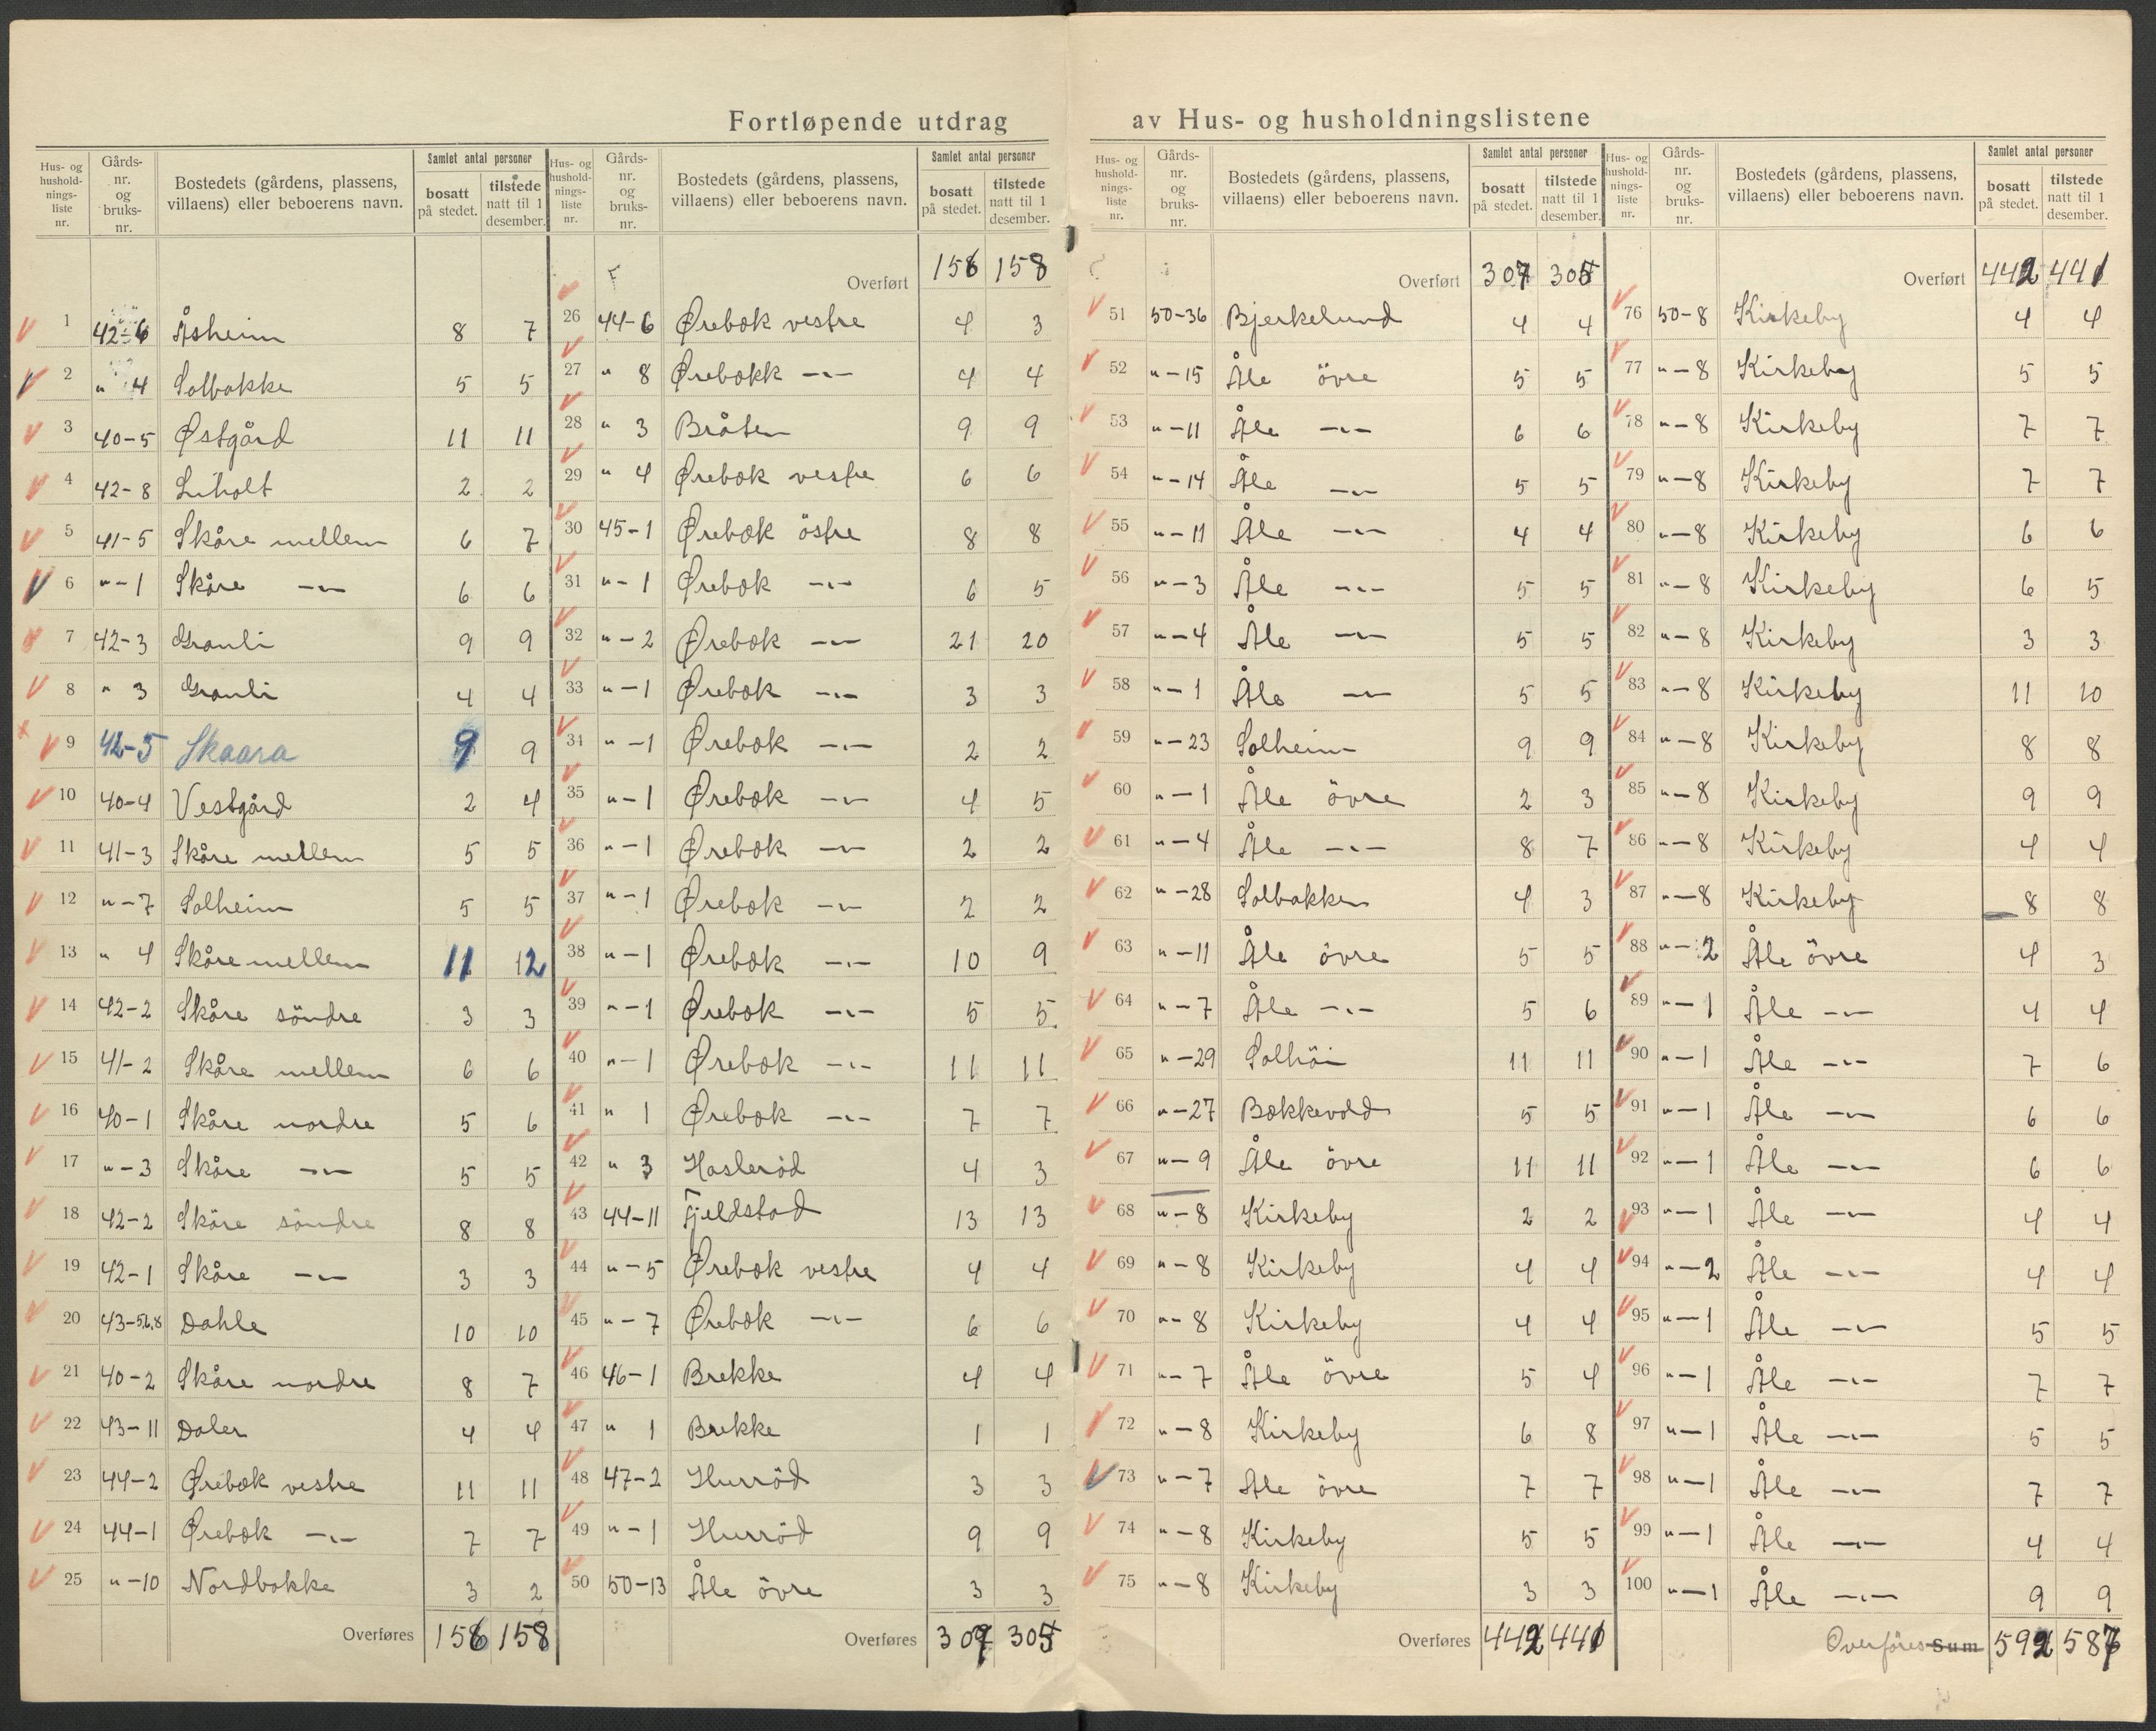 Fortløpende utdrag av Hus- og husholdningslistene
Hus- og husholdningsliste nr. | Gårds-nr. og bruks-nr. | Bostedets (gårdens, plassens, villaens) eller beboerens navn. | Samlet antal personer | bosatt på stedet. | tilstede natt til 1 desember.
1 42-6 Åsheim 8 7
2 " 4 Solbakke 5 5
3 40-5 Østgård 11 11
4 42-8 Liholt 2 2
5 41-5 Skåre mellem 6 7
6 "-1 Skåre -"- 6 6
7 42-3 Granli 9 9
8 " 3 Granli 4 4
9 42-5 Skaara 9 9
10 40-4 Vestgård 2 4
11 41-3 Skåre mellem 5 5
12 "-7 Solheim 5 5
13 " 4 Skåre mellem 11 12
14 42-2 Skåre söndre 3 3
15 41-2 Skåre mellem 6 6
16 40-1 Skåre nordre 5 6
17 "-3 Skåre -"- 5 5
18 42-2 Skåre söndre 8 8
19 42-1 Skåre -"- 3 3
20 43-5,6,8 Dahle 10 10
21 40-2 Skåre nordre 8 7
22 43-11 Daler 4 4
23 44-2 Ørebæk vestre 11 11
24 44-1 Ørebæk -"- 7 7
25 "-10 Nordbakke 3 2
Overføres 156 158
Hus- og husholdningsliste nr. | Gårds-nr. og bruks-nr. | Bostedets (gårdens, plassens, villaens) eller beboerens navn. | Samlet antal personer | bosatt på stedet. | tilstede natt til 1 desember.
Overført 156 158
26 44-6 Ørebæk vestre 4 3
27 " 8 Ørebækk -"- 4 4
28 " 3 Bråten 9 9
29 " 4 Ørebæk vestre 6 6
30 45-1 Ørebæk östre 8 8
31 "-1 Ørebæk -"- 6 5
32 "-2 Ørebæk -"- 21 20
33 "-1 Ørebæk -"- 3 3
34 "-1 Ørebæk -"- 2 2
35 "-1 Ørebæk -"- 4 5
36 "-1 Ørebæk -"- 2 2
37 "-1 Ørebæk -"- 2 2
38 "-1 Ørebæk -"- 10 9
39 "-1 Ørebæk -"- 5 5
40 "-1 Ørebæk -"- 11 11
41 " 1 Ørebæk -"- 7 7
42 " 3 Haslerød 4 3
43 44-11 Fjeldstad 13 13
44 "-5 Ørebæk vestre 4 4
45 "-7 Ørebæk -"- 6 6
46 46-1 Brekke 4 4
47 " 1 Brekke 1 1
48 47-2 Hurröd 3 3
49 "-1 Hurröd 9 9
50 50-13 Åle övre 3 3
Overføres 307 305
Hus- og husholdningsliste nr. | Gårds-nr. og bruks-nr. | Bostedets (gårdens, plassens, villaens) eller beboerens navn. | Samlet antal personer | bosatt på stedet. | tilstede natt til 1 desember.
Overført 307 305
51 50-36 Bjerkelund 4 4
52 "-15 Åle övre 5 5
53 "-11 Åle -"- 6 6
54 "-14 Åle -"- 5 5
55 "-11 Åle -"- 4 4
56 "-3 Åle -"- 5 5
57 "-4 Åle -"- 5 5
58 "-1 Åle -"- 5 5
59 "-23 Solheim 9 9
60 "-1 Åle övre 2 3
61 "-4 Åle -"- 8 7
62 "-28 Solbakken 4 3
63 "-11 Åle övre 5 5
64 "-7 Åle -"- 5 6
65 "-29 Solhöi 11 11
66 "-27 Bækkevold 5 5
67 "-9 Åle övre 11 11
68 "-8 Kirkeby 2 2
69 "-8 Kirkeby 4 4
70 "-8 Kirkeby 4 4
71 "-7 Åle övre 5 4
72 "-8 Kirkeby 6 8
73 "-7 Åle övre 7 7
74 "-8 Kirkeby 5 5
75 "-8 Kirkeby 3 3
Overføres 442 441
Hus- og husholdningsliste nr. | Gårds-nr. og bruks-nr. | Bostedets (gårdens, plassens, villaens) eller beboerens navn. | Samlet antal personer | bosatt på stedet. | tilstede natt til 1 desember.
Overført 442 441
76 50-8 Kirkeby 4 4
77 "-8 Kirkeby 5 5
78 "-8 Kirkeby 7 7
79 "-8 Kirkeby 7 7
80 "-8 Kirkeby 6 6
81 "-8 Kirkeby 6 5
82 "-8 Kirkeby 3 3
83 "-8 Kirkeby 11 10
84 "-8 Kirkeby 8 8
85 "-8 Kirkeby 9 9
86 "-8 Kirkeby 4 4
87 "-8 Kirkeby 8 8
88 "-2 Åle övre 4 3
89 "-1 Åle -"- 4 4
90 "-1 Åle -"- 7 6
91 "-1 Åle -"- 6 6
92 "-1 Åle -"- 6 6
93 "-1 Åle -"- 4 4
94 "-2 Åle -"- 4 4
95 "-1 Åle -"- 5 5
96 "-1 Åle -"- 7 7
97 "-1 Åle -"- 5 5
98 "-1 Åle -"- 7 7
99 "-1 Åle -"- 4 4
100 "-1 Åle -"- 9 9
Overføres Sum 592 587